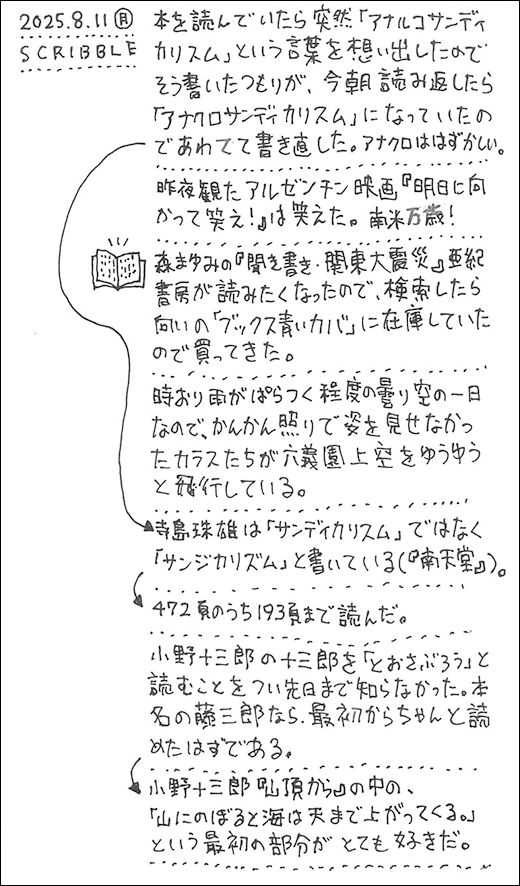 2025.8.11 ㊊
SCRIBBLE
本を読んでいたら突然「アナルコサンディ
カリスム」という言葉を想い出したので
そう書いたつもりが、今朝読み返したら
「アナクロサンディカリスム」になっていたの
であわてて書き直した。アナクロははずかしい。
昨夜観たアルゼンチン映画『明日に向
かって笑え!』は笑えた。南米万歳!
森まゆみの『聞き書き・関東大震災』亜紀
書房が読みたくなったので、検索したら
向いの「ブックス青いカバ」に在庫していた
ので買ってきた。
時おり雨がぱらつく程度の曇り空の一日
なので、かんかん照りで姿を見せなかっ
たカラスたちが六義園上空をゆうゆう
と飛行している。
寺島珠雄は「サンディカリスム」ではなく
「サンジカリズム」と書いている(『南天堂』)。
472頁のうち193頁まで読んだ。
小野十三郎の十三郎を「とおさぶろう」と
読むことをつい先日まで知らなかった。本
名の藤三郎なら、最初からちゃんと読
めたはずである。
小野十三郎『山頂から』の中の、
「山にのぼると海は天まで上がってくる。」
という最初の部分がとても好きだ。